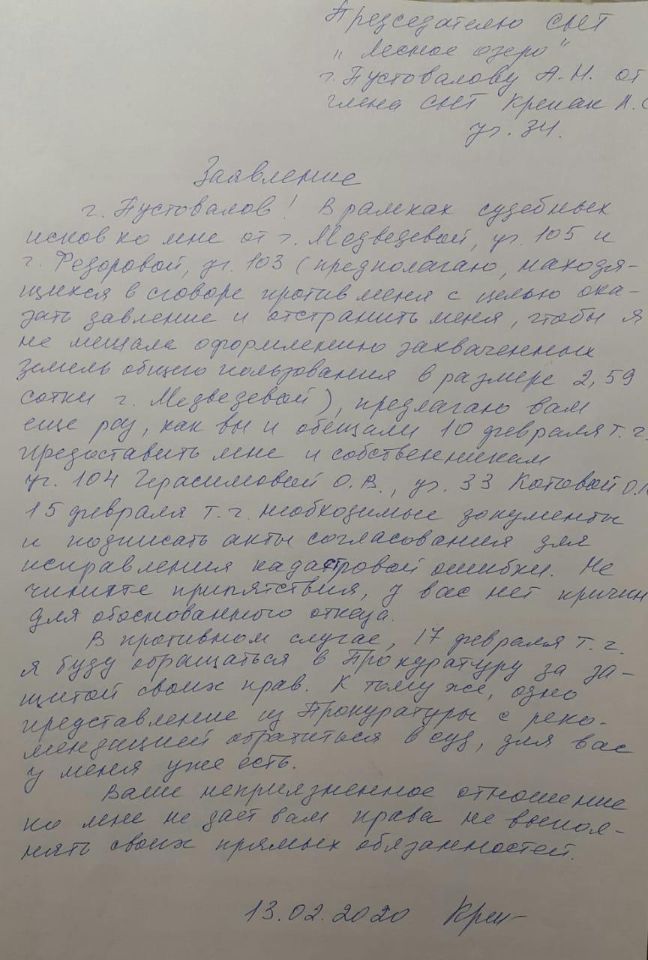 Председателю СНТ
„Лесное озеро"
г. Пустовалову А. Н. от
члена СНТ Крепак Л. С
уч. 34.
Заявление
г. Пустовалов! В рамках судебных
исков ко мне от г. Медведевой, уч. 105 и
г. Федоровой, уч. 103 (предполагаю, находя-
щихся в сговоре против меня с целью ока-
зать давление и отстранить меня, чтобы я
не мешала оформлению захваченных
земель общего пользования в размере 2,59
сотки г. Медведевой), предлагаю вам
еще раз, как вы и обещали 10 февраля т. г.
предоставить мне и собственникам
уч. 104 Герасимовой О. В., уч. 33 Котовой О.
15 февраля т. г. необходимые документы
и подписать акты согласования для
исправления кадастровой ошибки. Не
чините припятствия, у вас нет причин
для обоснованного отказа.
В противном случае, 17 февраля т. г.
я буду обращаться в Прокуратуру за за-
щитой своих прав. К тому же, одно
представление из Прокуратуры с реко-
мендацией обратиться в суд, для вас
у меня уже есть.
Ваше неприязненное отношение
ко мне не дает вам права не выпол-
нять своих прямых обязанностей.
13.02.2020